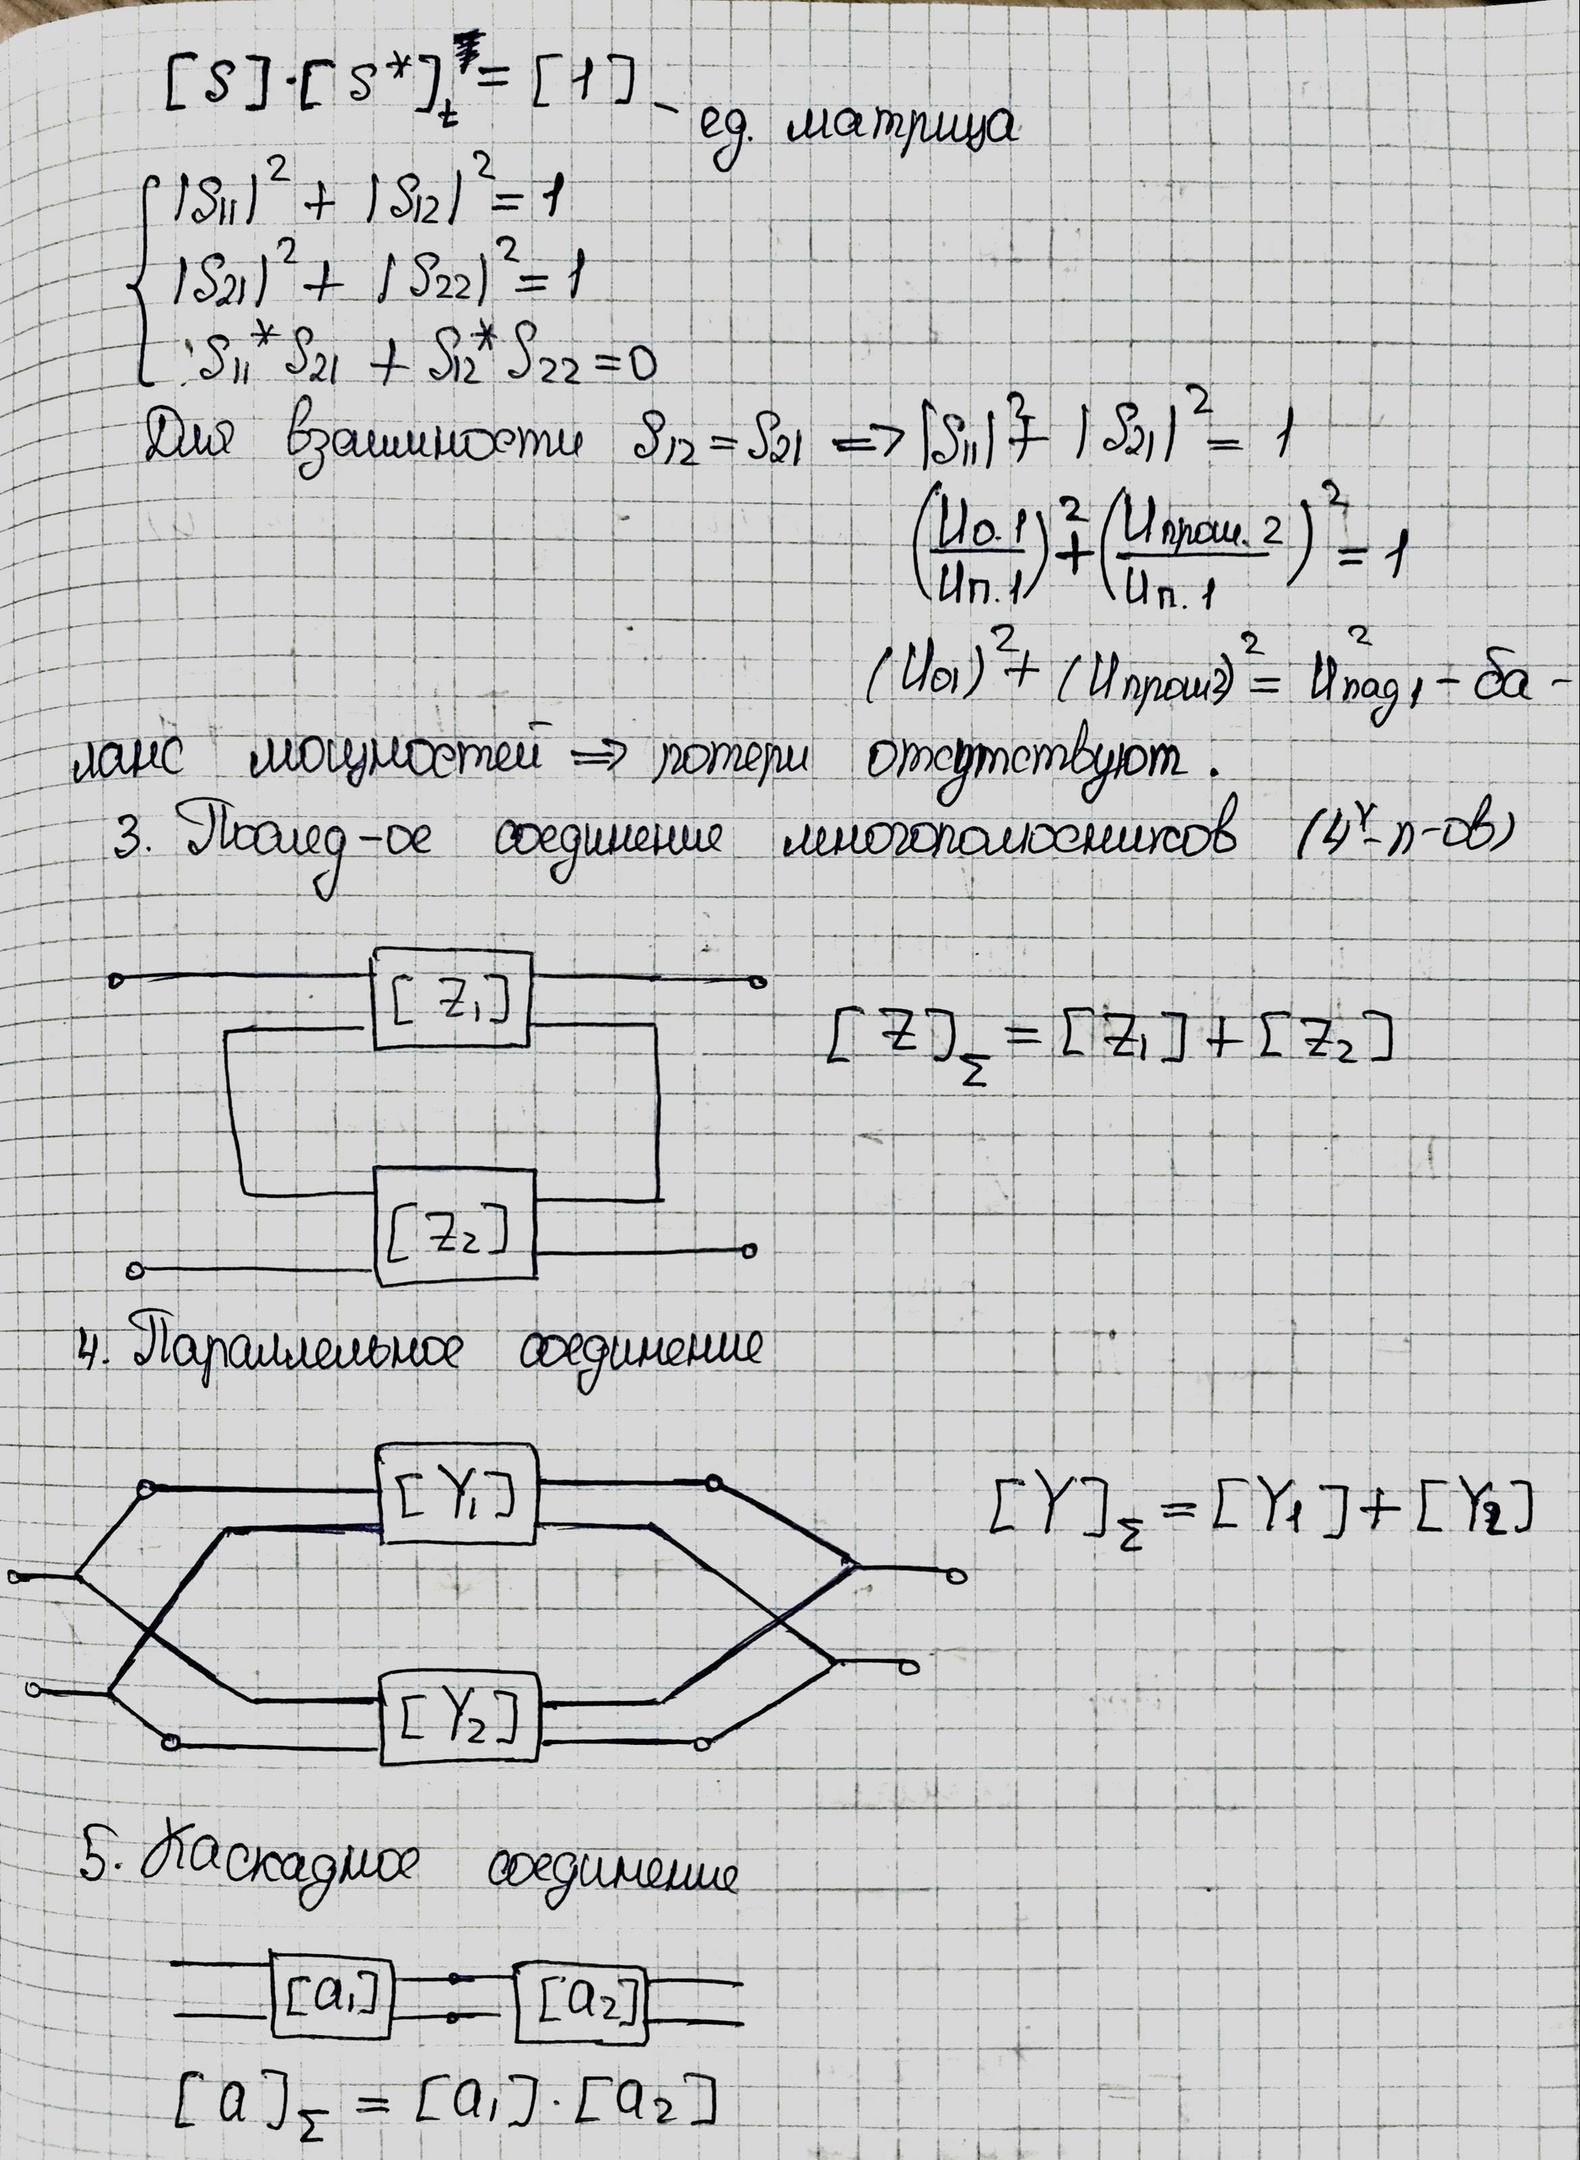 [S]·[S*]t = [1] - ед. матрица
|S11|² + |S12|² = 1
|S21|² + |S22|² = 1
S11* S21 + S12* S22 = 0
Для взаимности S12 = S21 => |S11|² + |S21|² = 1
(Uо.1/Uп.1)² + (Uпрош.2/Uп.1)² = 1
(Uо1)² + (Uпрош2)² = U²пад1 - ба-
ланс мощностей => потери отсутствуют.
3. Послед-ое соединение многополюсников (4х-п-ов)
[Z1]
[Z]Σ = [Z1] + [Z2]
[Z2]
4. Параллельное соединение
[Y1]
[Y]Σ = [Y1] + [Y2]
[Y2]
5. Каскадное соединение
[a1] [a2]
[a]Σ = [a1]·[a2]